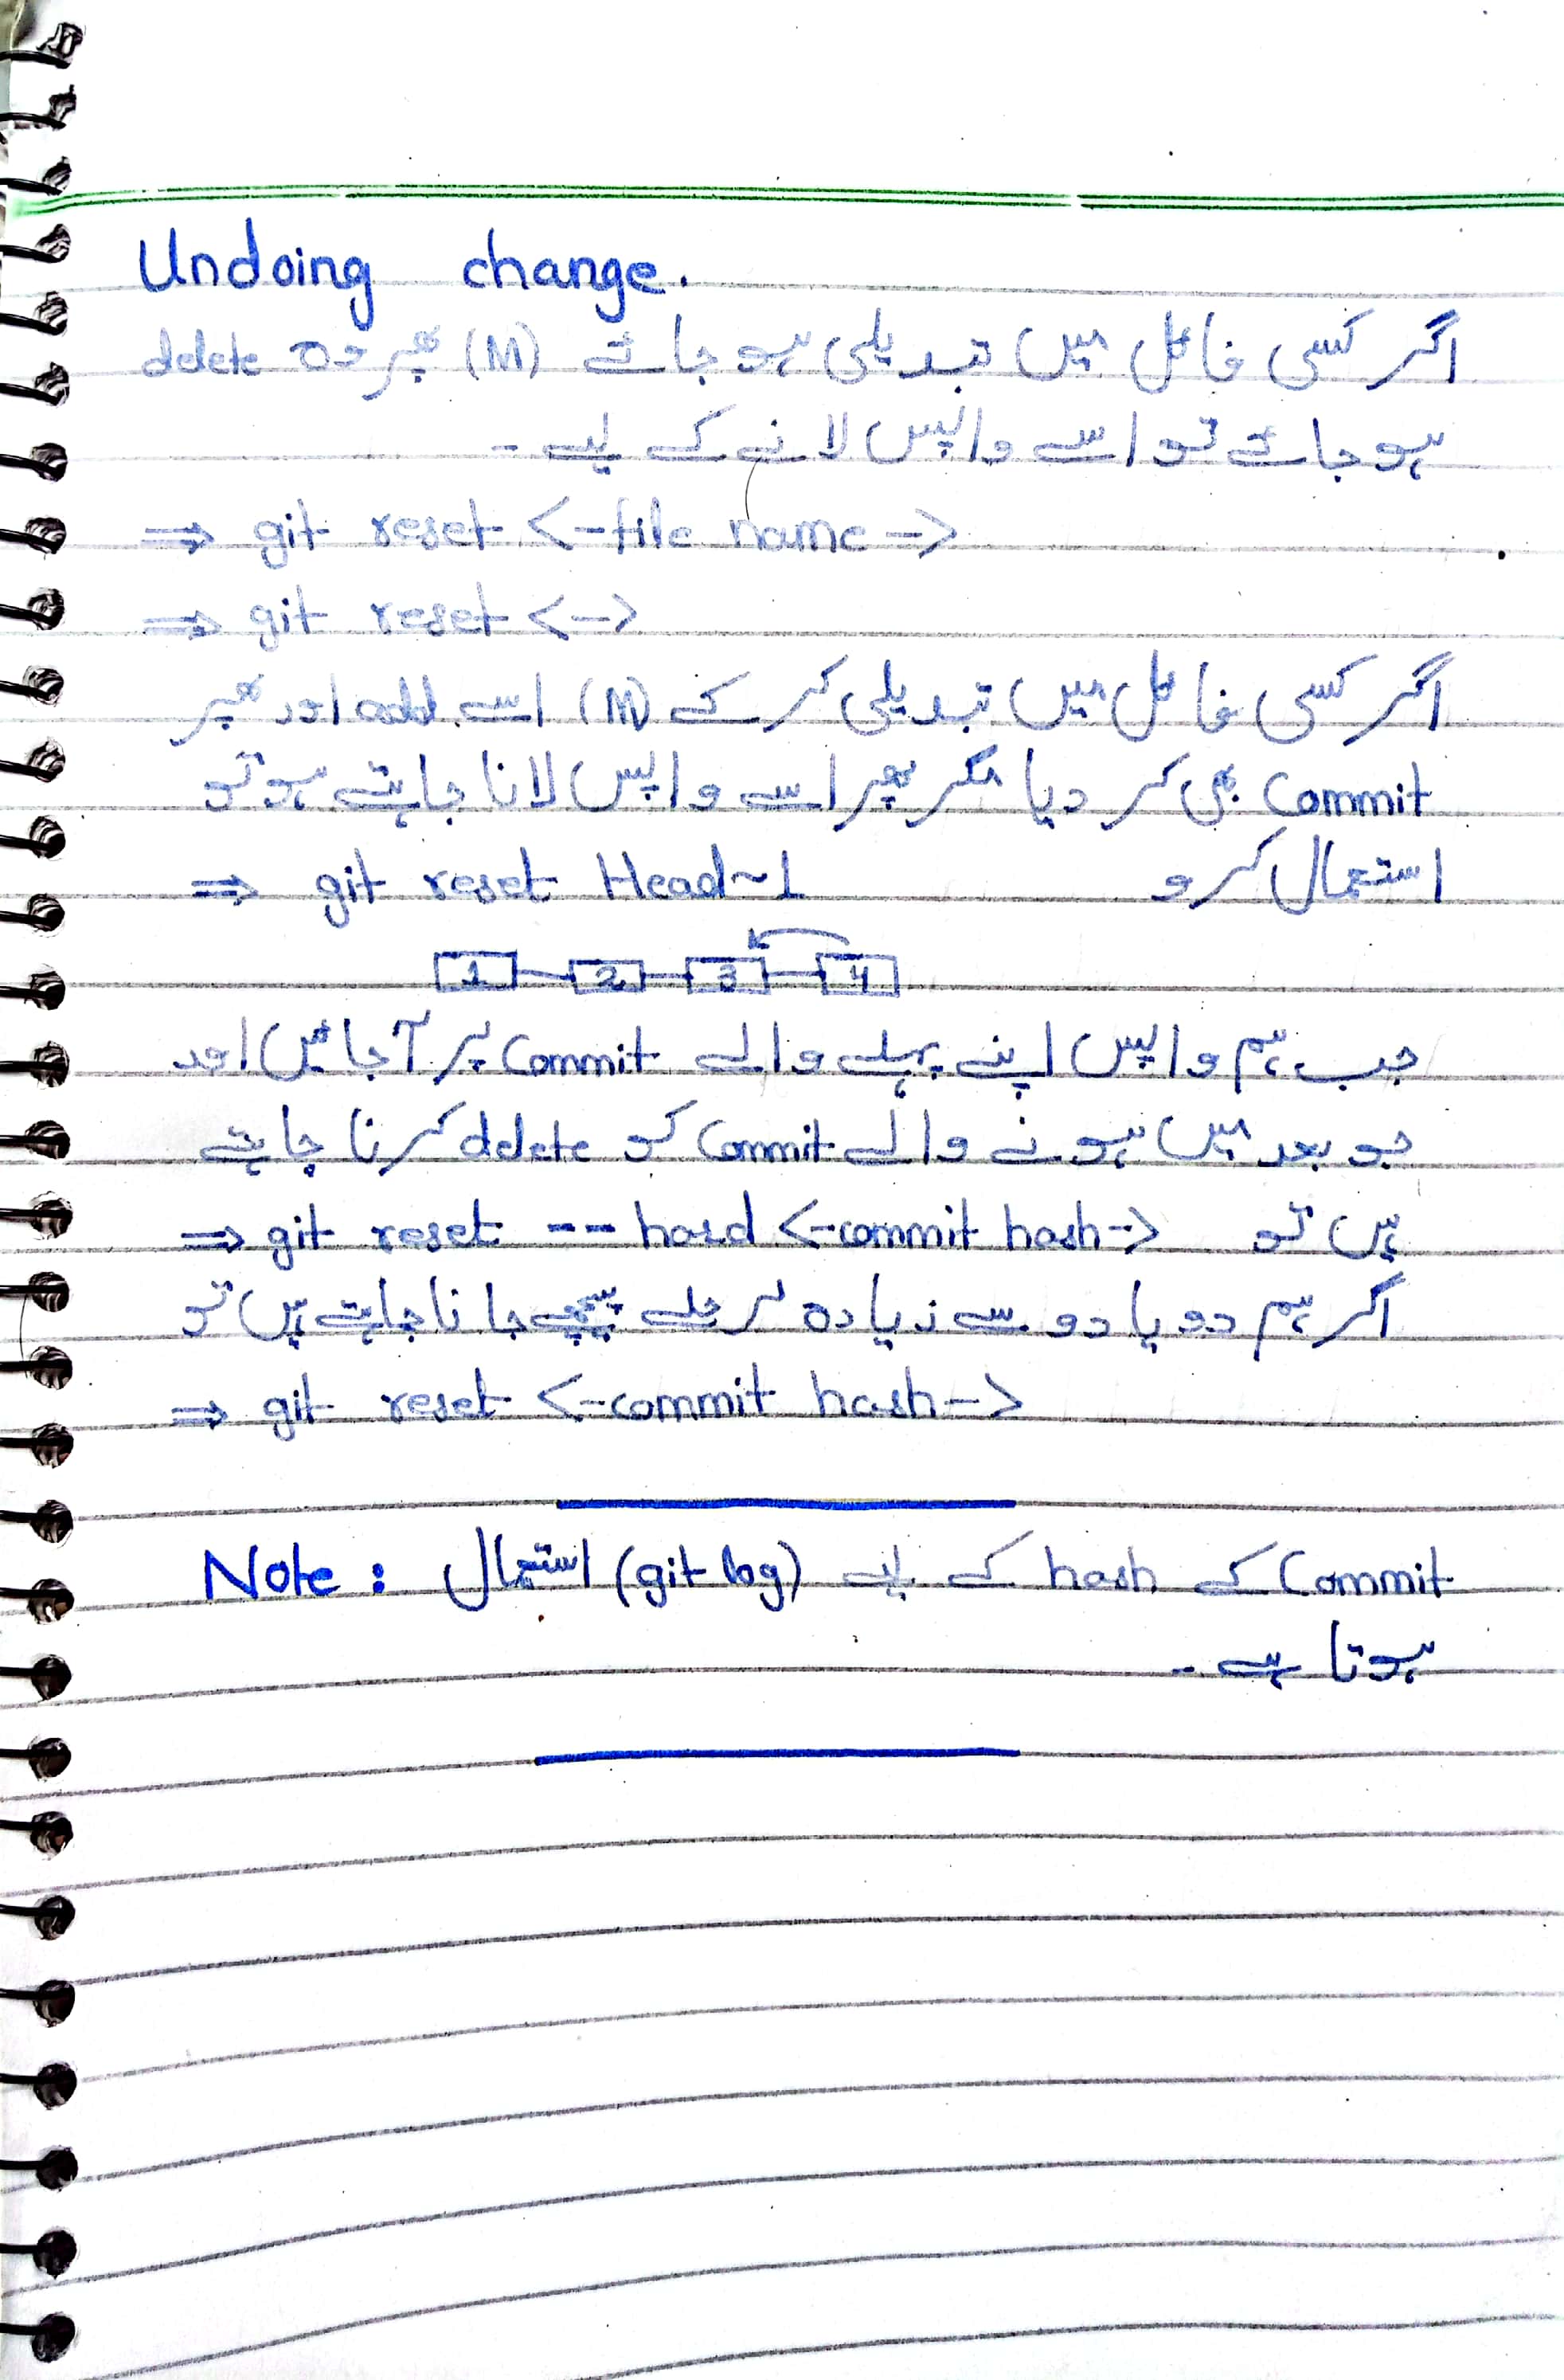 Undoing change.
اگر کسی فائل میں تبدیلی ہو جائے (M) پھر وہ delete
ہو جائے تو اسے واپس لانے کے لیے ۔
⇒ git reset <-file name->
⇒ git reset <->
اگر کسی فائل میں تبدیلی کر کے (M) اسے add اور پھر
Commit بھی کر دیا مگر پھر اسے واپس لانا چاہتے ہو تو
استعمال کرو ⇒ git reset Head~1
1 2 3 4
جب ہم واپس اپنے پہلے والے Commit پر آجائیں اور
جو بعد میں ہونے والے Commit کو delete کرنا چاہتے
ہیں تو ⇒ git reset -- hard <-commit hash->
اگر ہم دو یا دو سے زیادہ مرحلے پیچھے جانا چاہتے ہیں تو
⇒ git reset <-commit hash->
Note : Commit کے hash کے لیے (git log) استعمال
ہوتا ہے ۔